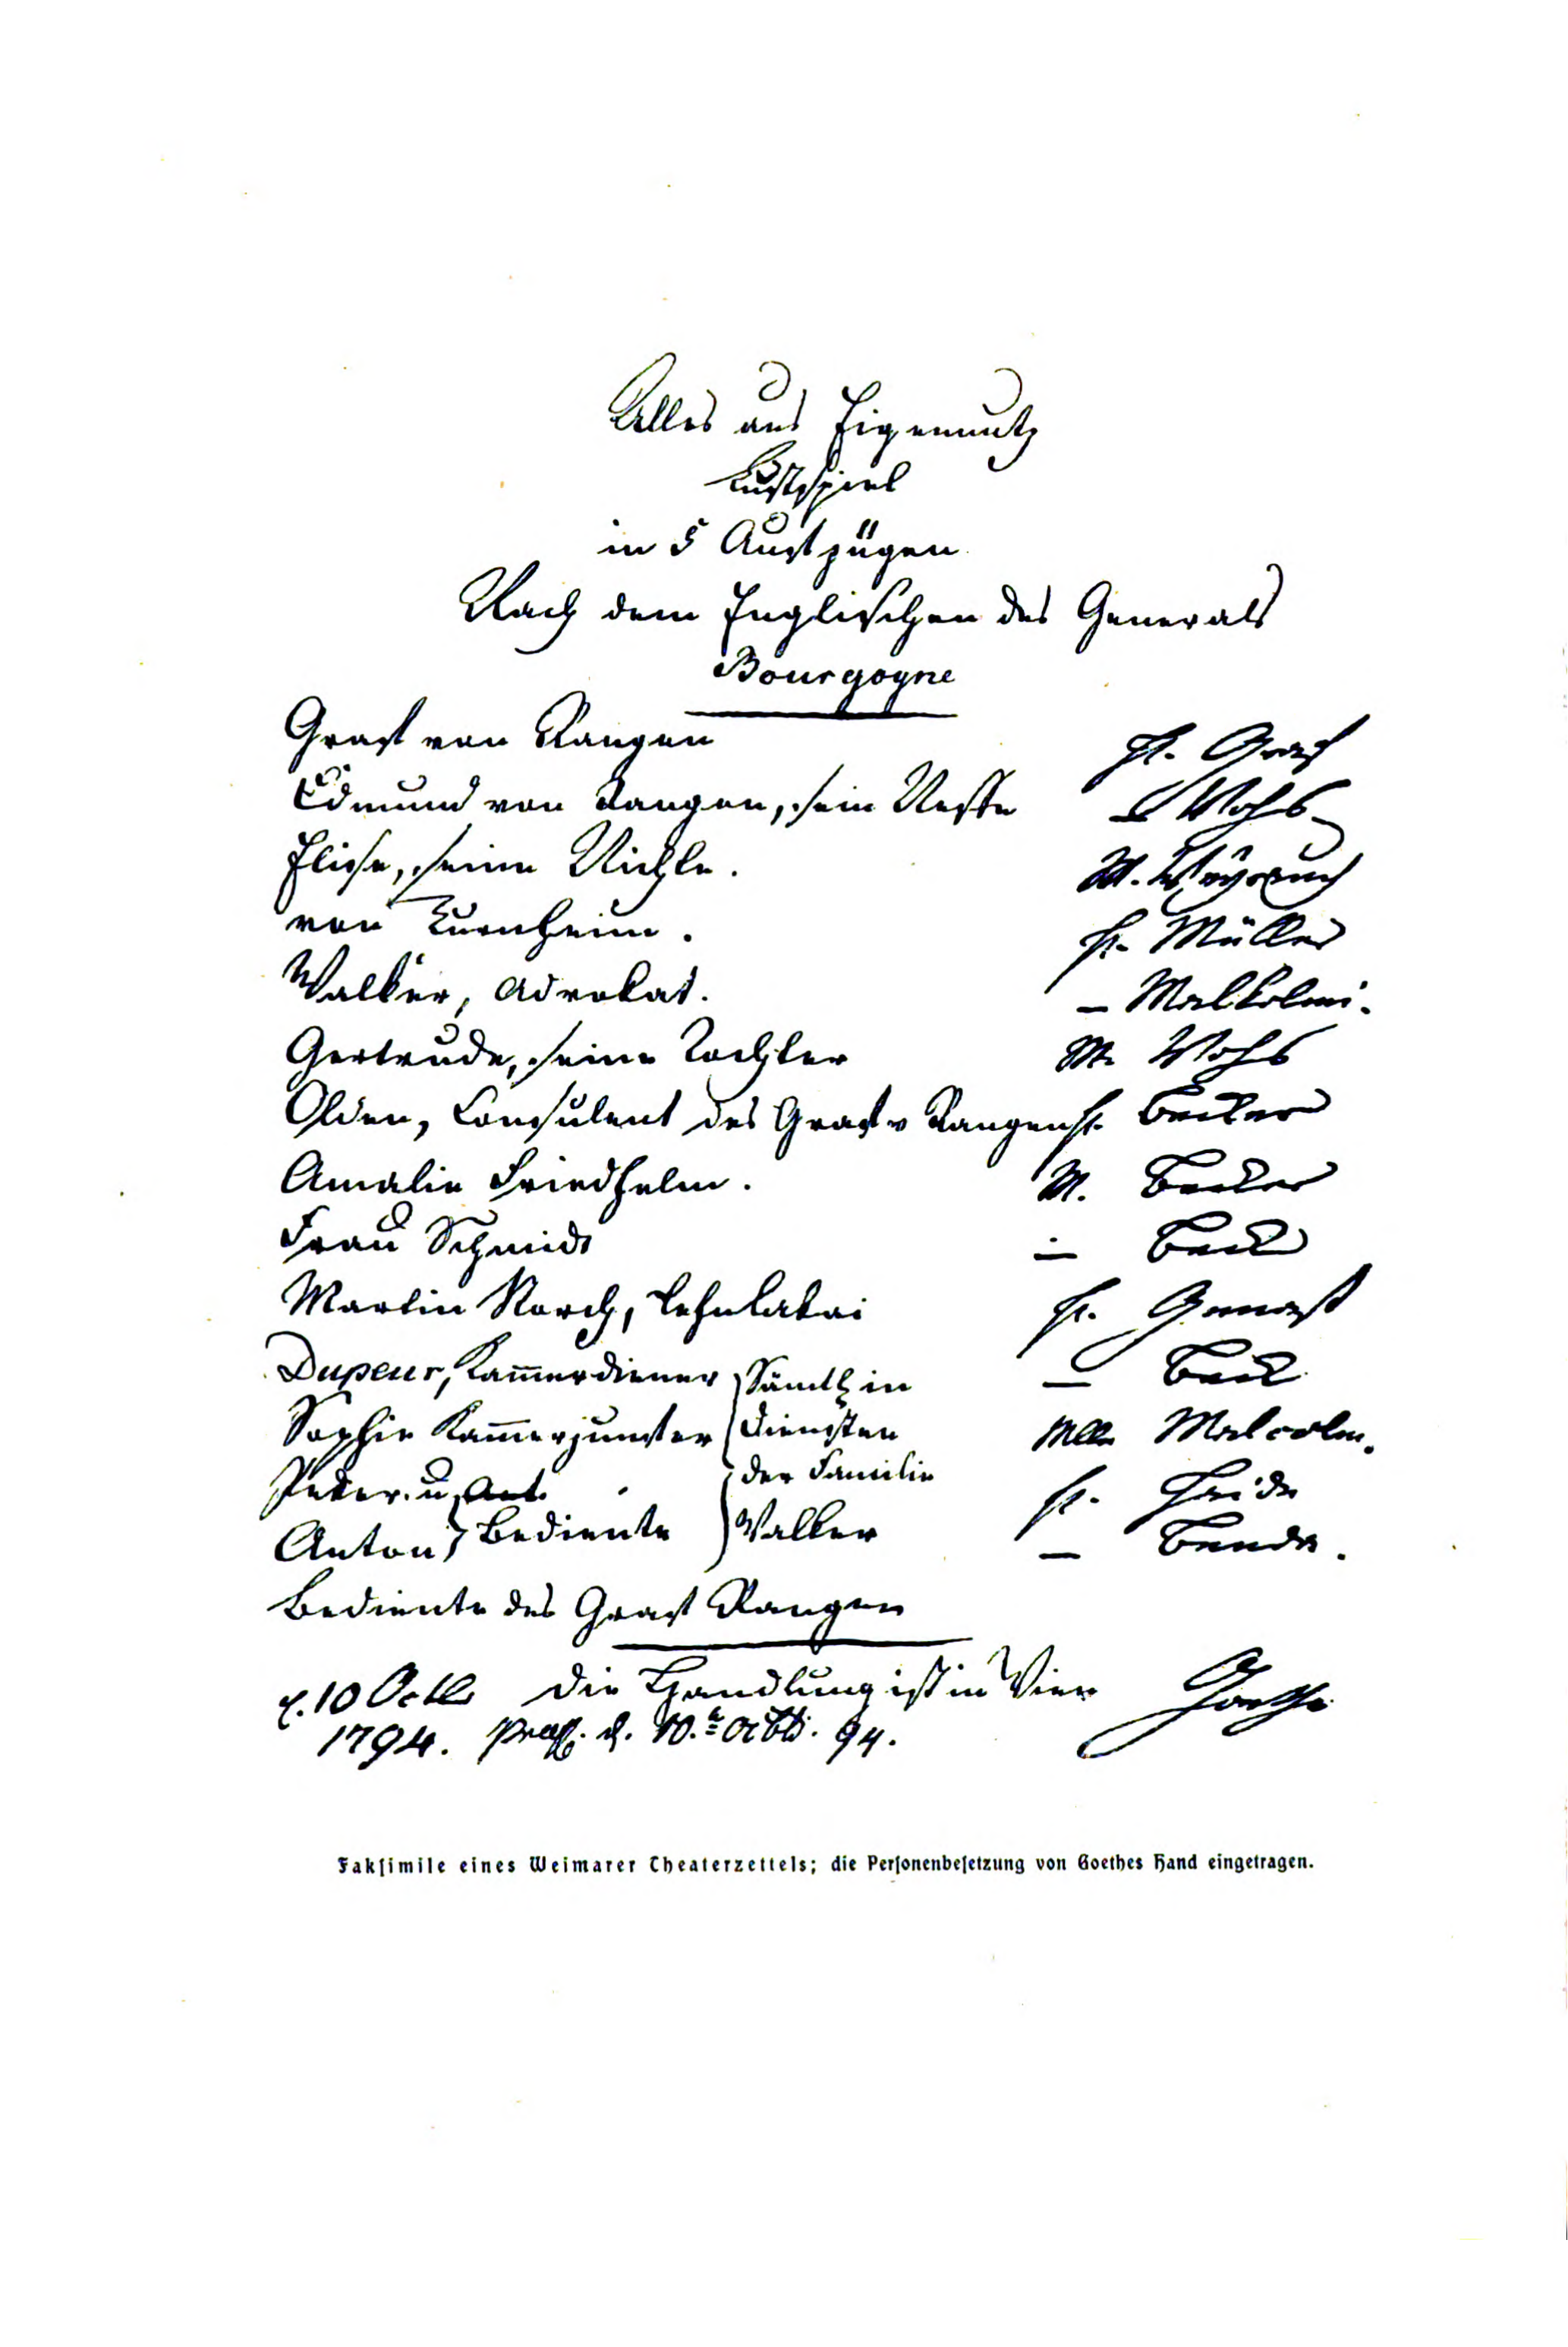 Alles aus Eigennutz
Lustspiel
in 5 Aufzügen
Nach dem Englischen des Generals
Bourgogne
Graf von Rangen Hr. Graf
Edmund von Rangen, sein Neffe — Vohs
Elise, seine Nichte. M. Weyrauch
von Turnheim. Hr. Müller
Walker, Advokat. — Malkolmi.
Gertrude, seine Tochter M. Vohs
Olden, Consulent des Graf v Rangen Hr. Becker
Amalie Friedhelm. M. Becker
Frau Schmidt — Beck
Martin Storch, Lehnlakai Hr. Genast
Dupeur, Kam̅erdiener Sämtl. in — Beck
Sophie Kam̅erjunfer Diensten Mlle Malcolm.
Peter u. Ant. der Familie Hr. Haide
Anton, Bediente Walker — Benda.
Bediente des Graf Rangen
d. 10 Octb Die Handlung ist in Wien Goethe
1794. praes. d. 10. Octb. 94.
Faksimile eines Weimarer Theaterzettels; die Personenbesetzung von Goethes Hand eingetragen.